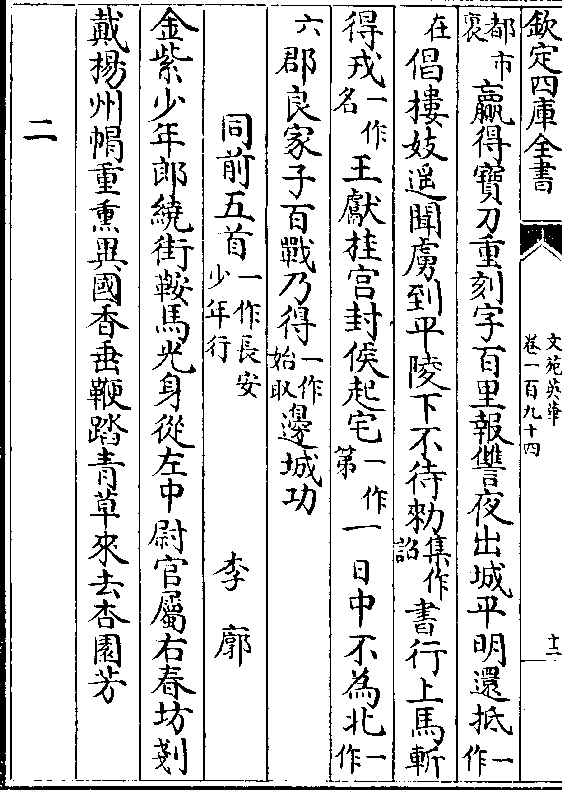 欽定四庫全書
文苑英華
卷一百九十四
十二
都市裏羸得寶刀重刻字百里報讐夜出城平明還抵一作
在倡樓妓遥聞虜到平陵下不待勑集作詔書行上馬斬
得戎一作名王獻桂宮封侯起宅一作第一日中不為北一作
六郡良家子百戰乃得一作始取邊城功
同前五首一作長安少年行 李廓
金紫少年郎繞街鞍馬光身從左中尉官屬右春坊剗
戴揚州帽重熏異國香垂鞭踏青草來去杏園芳
二